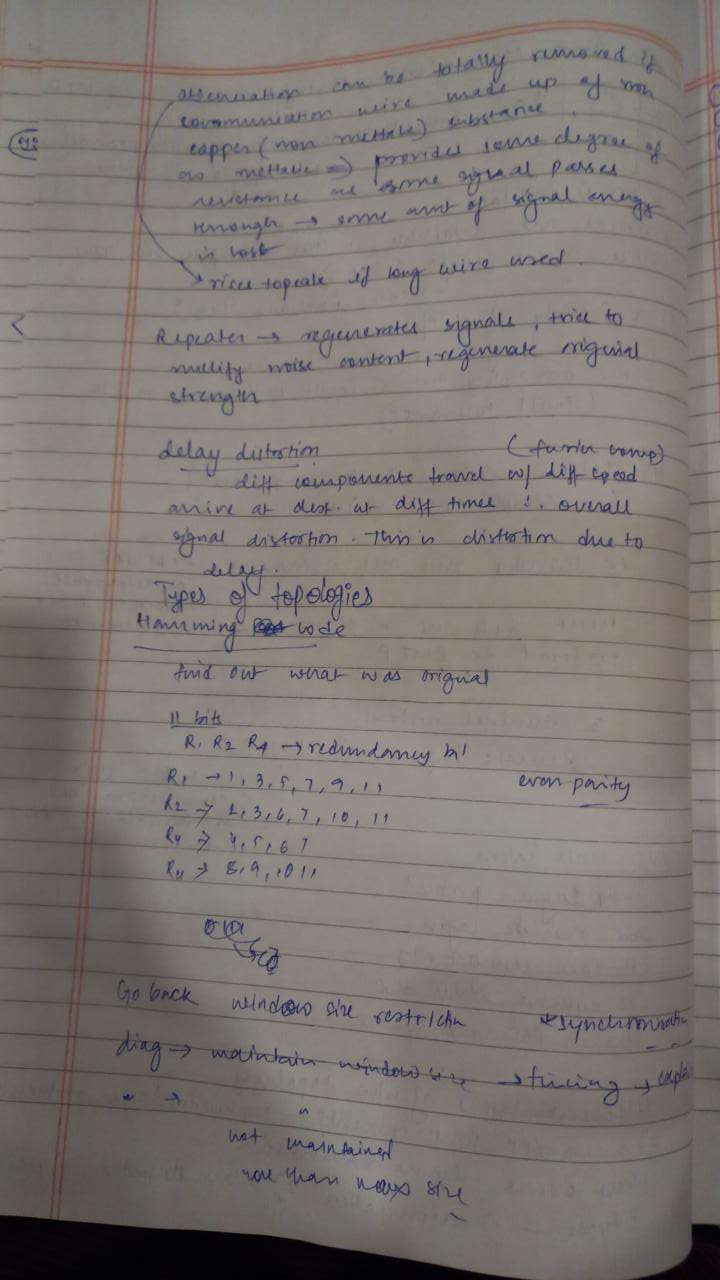 attenuation can be totally removed if
communication wire made up of non
copper (non mettalic) substance.
as mettalic => provides some degree of
resistance as some signal passes
through → some amt of signal energy
is lost
→ rises to peak if long wire used.
Repeater → regenerates signals, tries to
nullify noise content, regenerate original
strength
delay distortion (furier comp)
diff components travel w/ diff speed
arrive at dest. at diff times ∴ overall
signal distortion. This is distortion due to
delay.
Types of topologies
Hamming code
find out what was original
11 bits
R1 R2 R4 → redundancy bit
R1 → 1, 3, 5, 7, 9, 11 even parity
R2 → 2, 3, 6, 7, 10, 11
R4 → 4, 5, 6 7
8, 9, 10 11
Go back window size restrictn *synchronisatn
diag → maintain window size → timing →
" → "
not maintained
more than max size